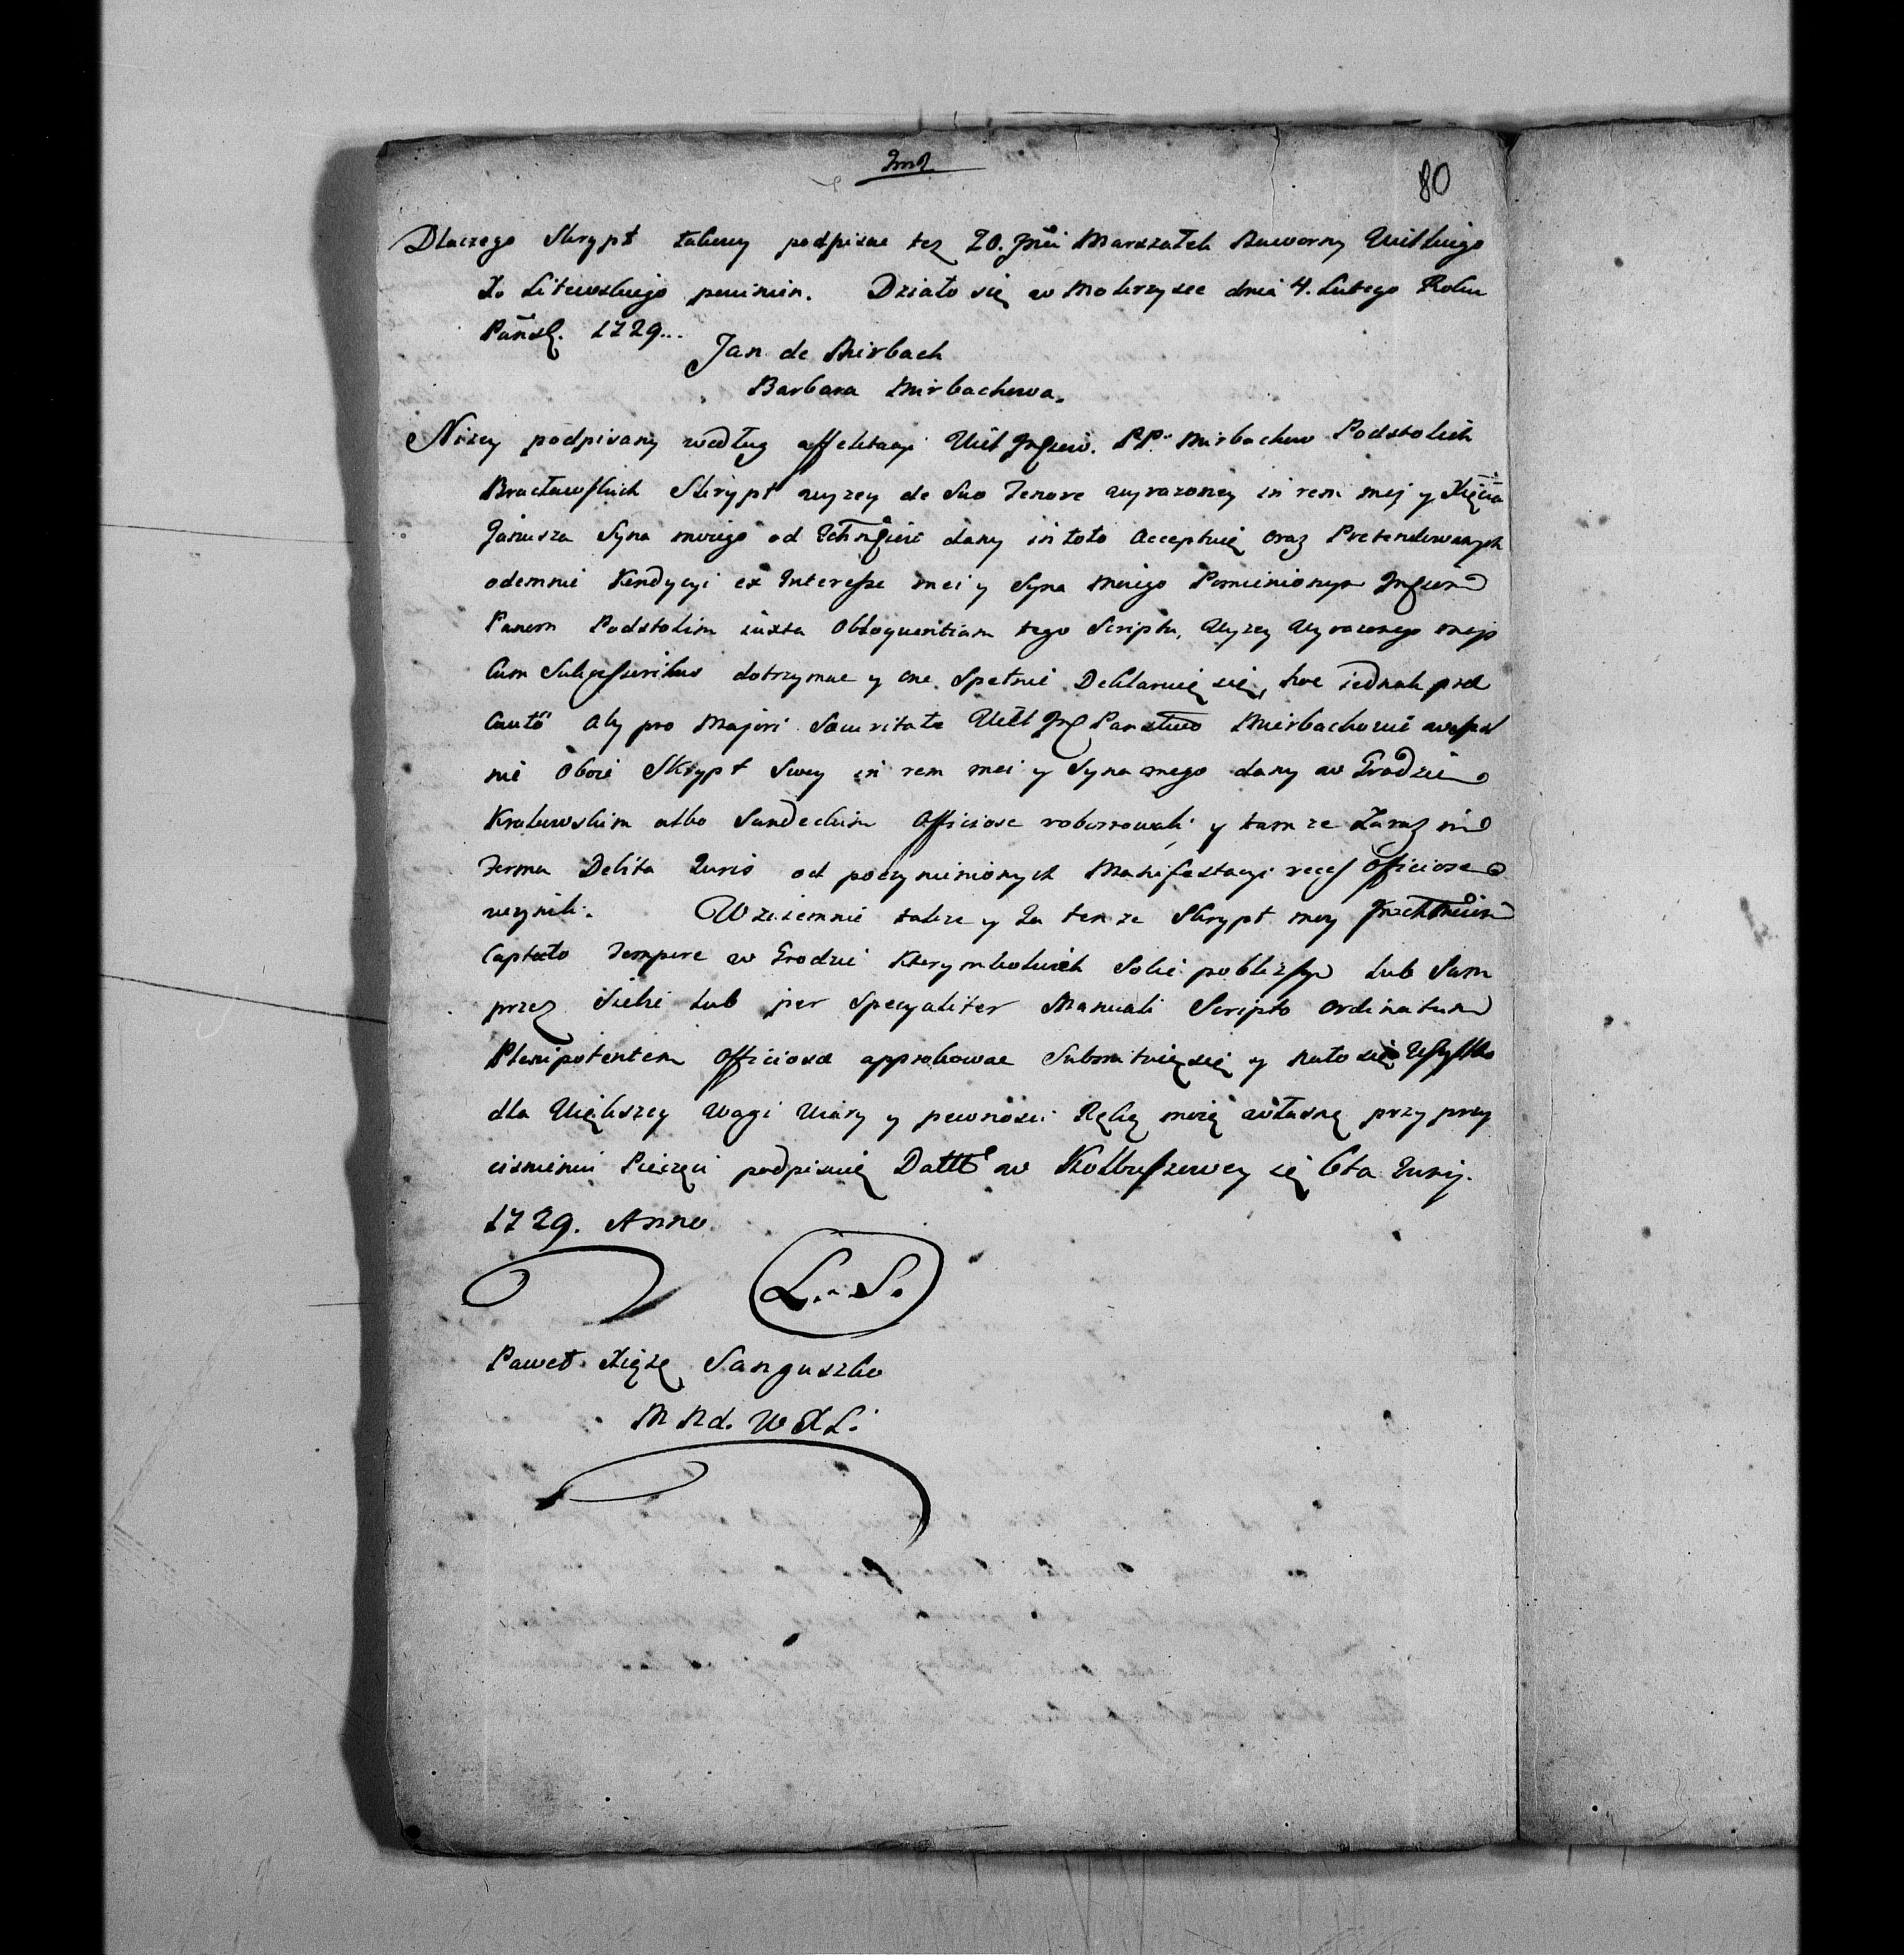 80
Dlaczego Skrypt takowy podpisac tez J.O. Marszałek Naworny Wielkiego
X. Litewskiego powinien. Działo się w Mokrzysce dnia 4. Lutego Roku
Pańsk. 1729..
Jan de Mirbach
Barbara Mirbachowa.
Nizey podpisany według affektacyi PP. Mirbachow Podstolich
Bracławskich Skrypt wyzey de Suo Tenore wyrazoney in rem mej y Xięcia
Janusza Syna moiego od dany in toto Acceptuię oraz Pretendowanych
odemnie Kondycyi ex Interesse mei y Syna Moiego Pomienionym
Panom Podstolim iuxta Obloquentiam tego Scriptu, Wyzey Wyrazonego mego
Cum Sukcessoribus dotrzymac y one Spełnic Deklaruię się, hoc iednak prae
Cauto Aby pro Majori Securitate Państwo Mirbachowie
nie Oboie Skrypt Swoy in rem mei y Syna mego dany w Grodzie
Krakowskim albo Sandeckim Officiose roborowali y tam ze Zaraz in
Forma Debita Iuris od poczynionych Manifestacyi reces Officiose
uczynili. Wzaiemnie takze y Ja ten ze Skrypt moy
Captato Tempore w Grodzie Ktorymkolwiek Sobie poblizszym Lub Sam
przez Siebie Lub per Specyaliter Manuali Scripto Ordinatum
Plenipotentem Officiose approbowac Submituię się y na to się Wszystko
dla Większey Wagi Wiary y pewnosci Ręką moią własną przy przy
cisnieniu Pieczęci podpisuię w Kolbuszowey 6ta Iunij.
1729. Anno
L. S.
Paweł Xiąże Sanguszko
M Nd. W X L.